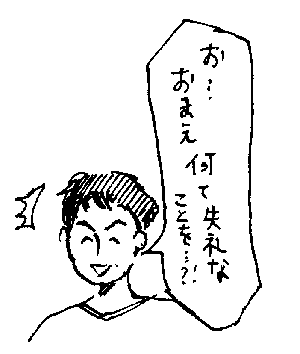 お…
おまえ 何て失礼な
ことを…?!